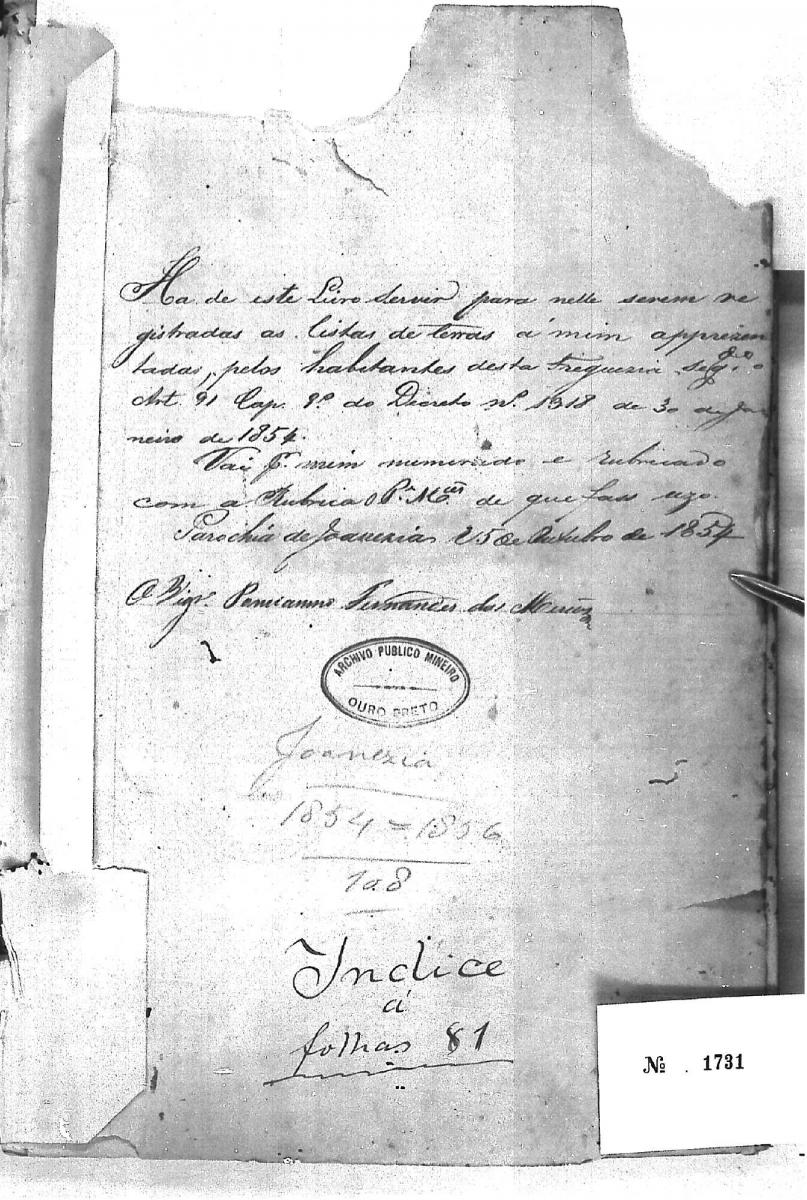 Ha de este Livro servir para nelle serem re
gistradas as listas de terras á mim apprezen
tadas, pelos habitantes desta Freguezia seg.do o
Art. 91 Cap. 9º do Decreto nº. 1318 de 30 de Ja
neiro de 1854.
Vai p.r mim numerado e rubricado
com a Rubrica de que fass uzo.
Parochia de Joanezia 25 de Outubro de 1854
O Vigr.º Fernandes dos
ARCHIVO PUBLICO MINEIRO
OURO PRETO
Joanezia
1854 = 1856
108
Indice
á
folhas 81
Nº . 1731